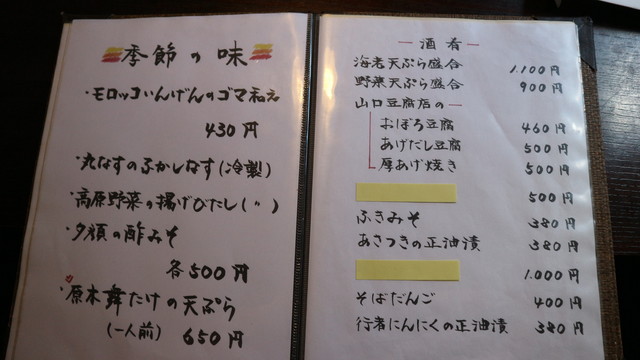 季節の味
・モロッコいんげんのゴマ和え
430円
・丸なすのふかしなす(冷製)
・高原野菜の揚げびたし(〃)
・夕顔の酢みそ
各500円
・原木舞たけの天ぷら
(一人前) 650円
酒肴
海老天ぷら盛合 1.100円
野菜天ぷら盛合 900円
山口豆腐店の
おぼろ豆腐 460円
あげだし豆腐 500円
厚あげ焼き 500円
500円
ふきみそ 380円
あさつきの正油漬 380円
1.000円
そばだんご 400円
行者にんにくの正油漬 380円